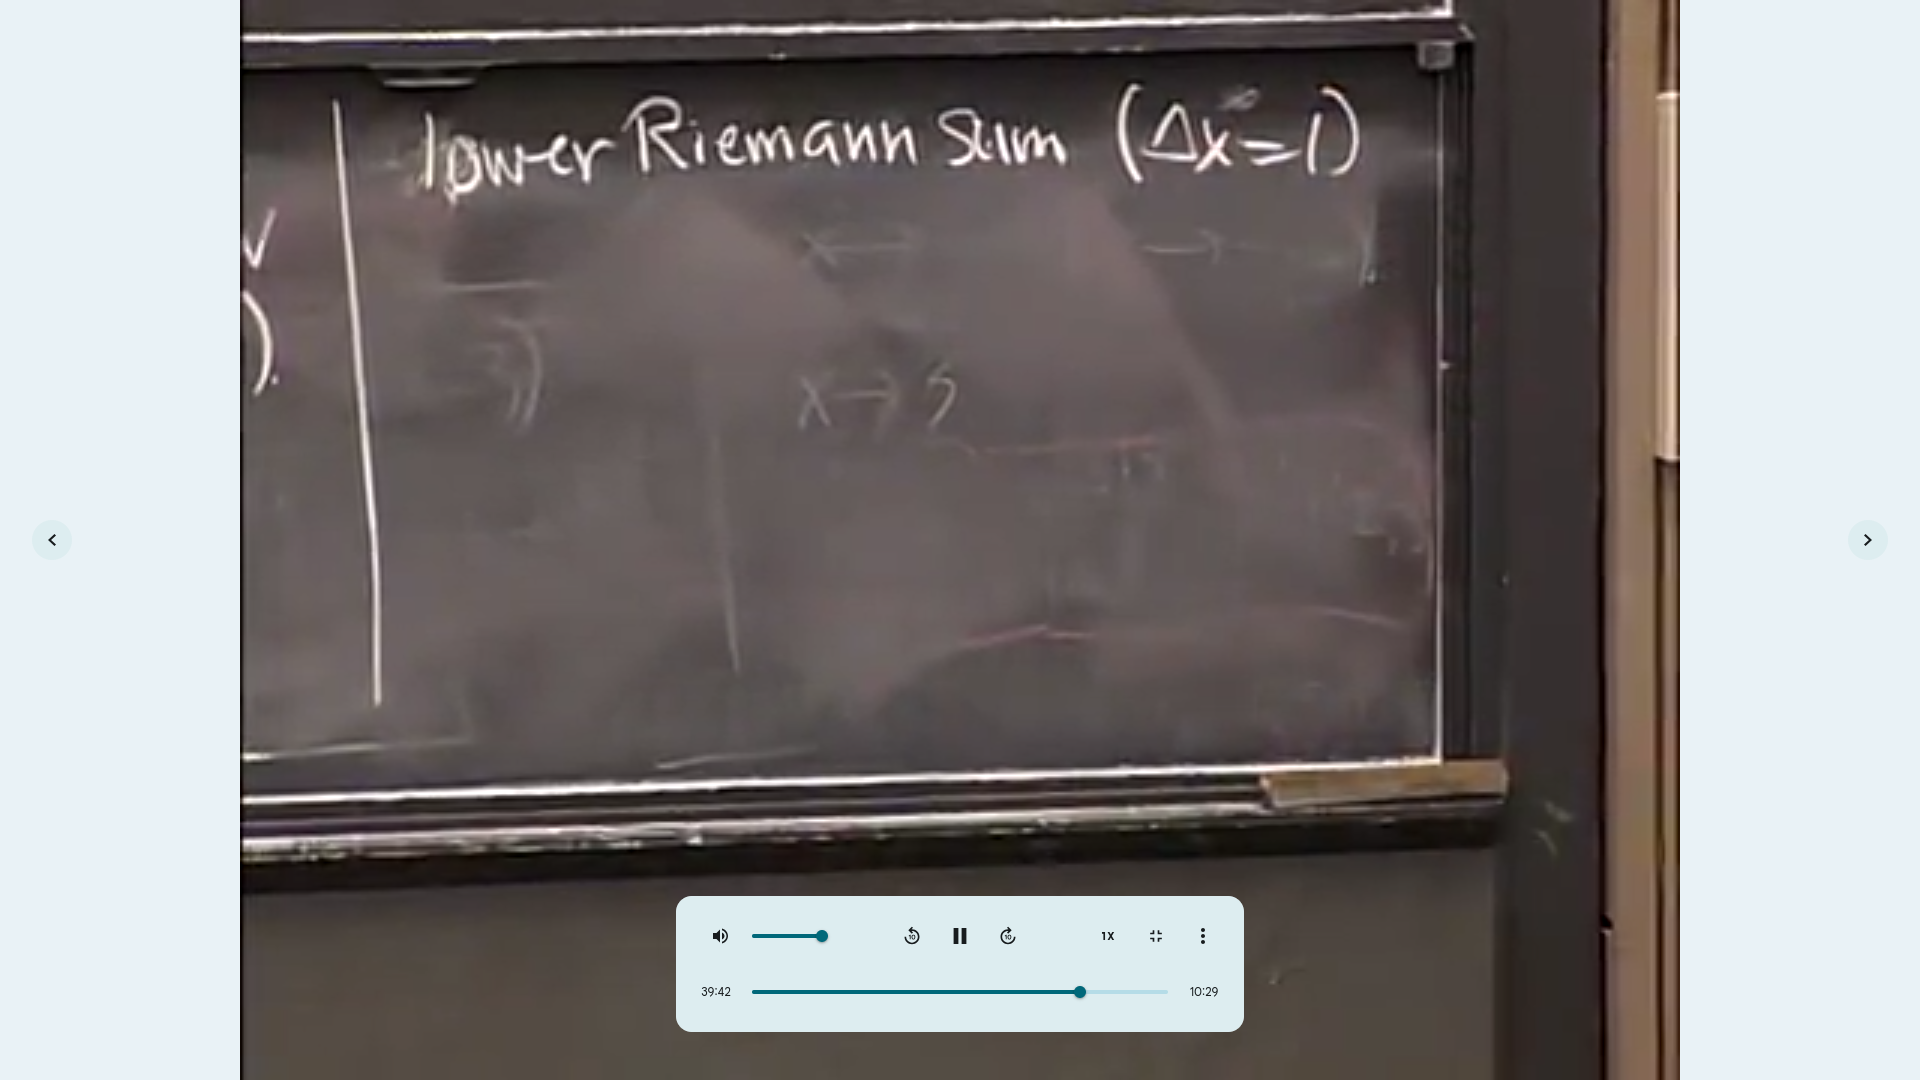 lower Riemann Sum (Δx=1)
).
x→
→
x→
1X
39:42
10:29